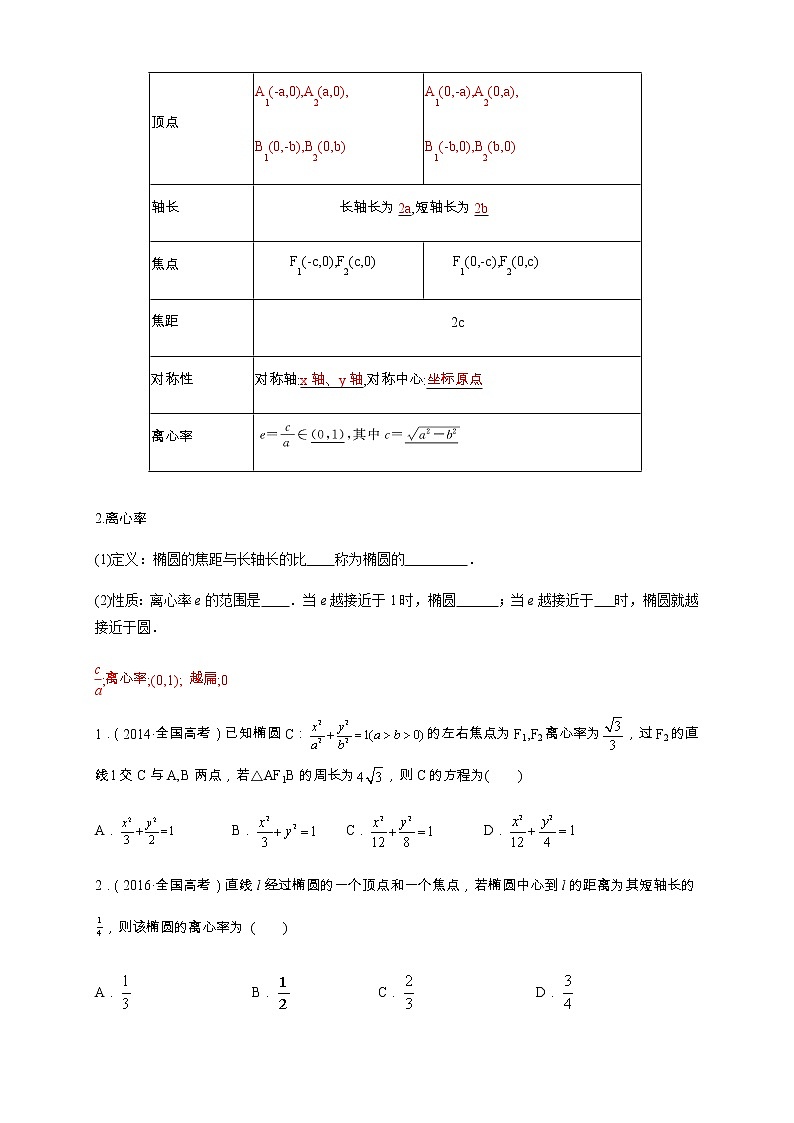 A₁(-a,0),A₂(a,0), A₁(0,-a),A₂(0,a),
顶点
B₁(0,-b),B₂(0,b) B₁(-b,0),B₂(b,0)
轴长 长轴长为 2a,短轴长为 2b
焦点 F₁(-c,0),F₂(c,0) F₁(0,-c),F₂(0,c)
焦距 2c
对称性 对称轴:x 轴、y 轴,对称中心:坐标原点
离心率 e=c/a∈(0,1),其中 c=√(a²-b²)
2.离心率
(1)定义：椭圆的焦距与长轴长的比____称为椭圆的_________．
(2)性质：离心率 e 的范围是____．当 e 越接近于 1 时，椭圆______；当 e 越接近于___时，椭圆就越
接近于圆．
c/a;离心率;(0,1); 越扁;0
1．（2014·全国高考）已知椭圆 C：x²/a²+y²/b²=1(a>b>0)的左右焦点为 F₁,F₂离心率为√3/3，过F₂的直
线l交 C 与 A,B 两点，若△AF₁B 的周长为4√3，则 C 的方程为( )
A．x²/3+y²/2=1 B．x²/3+y²=1 C．x²/12+y²/8=1 D．x²/12+y²/4=1
2．（2016·全国高考）直线 l 经过椭圆的一个顶点和一个焦点，若椭圆中心到 l 的距离为其短轴长的
1/4，则该椭圆的离心率为 ( )
A．1/3 B．1/2 C．2/3 D．3/4